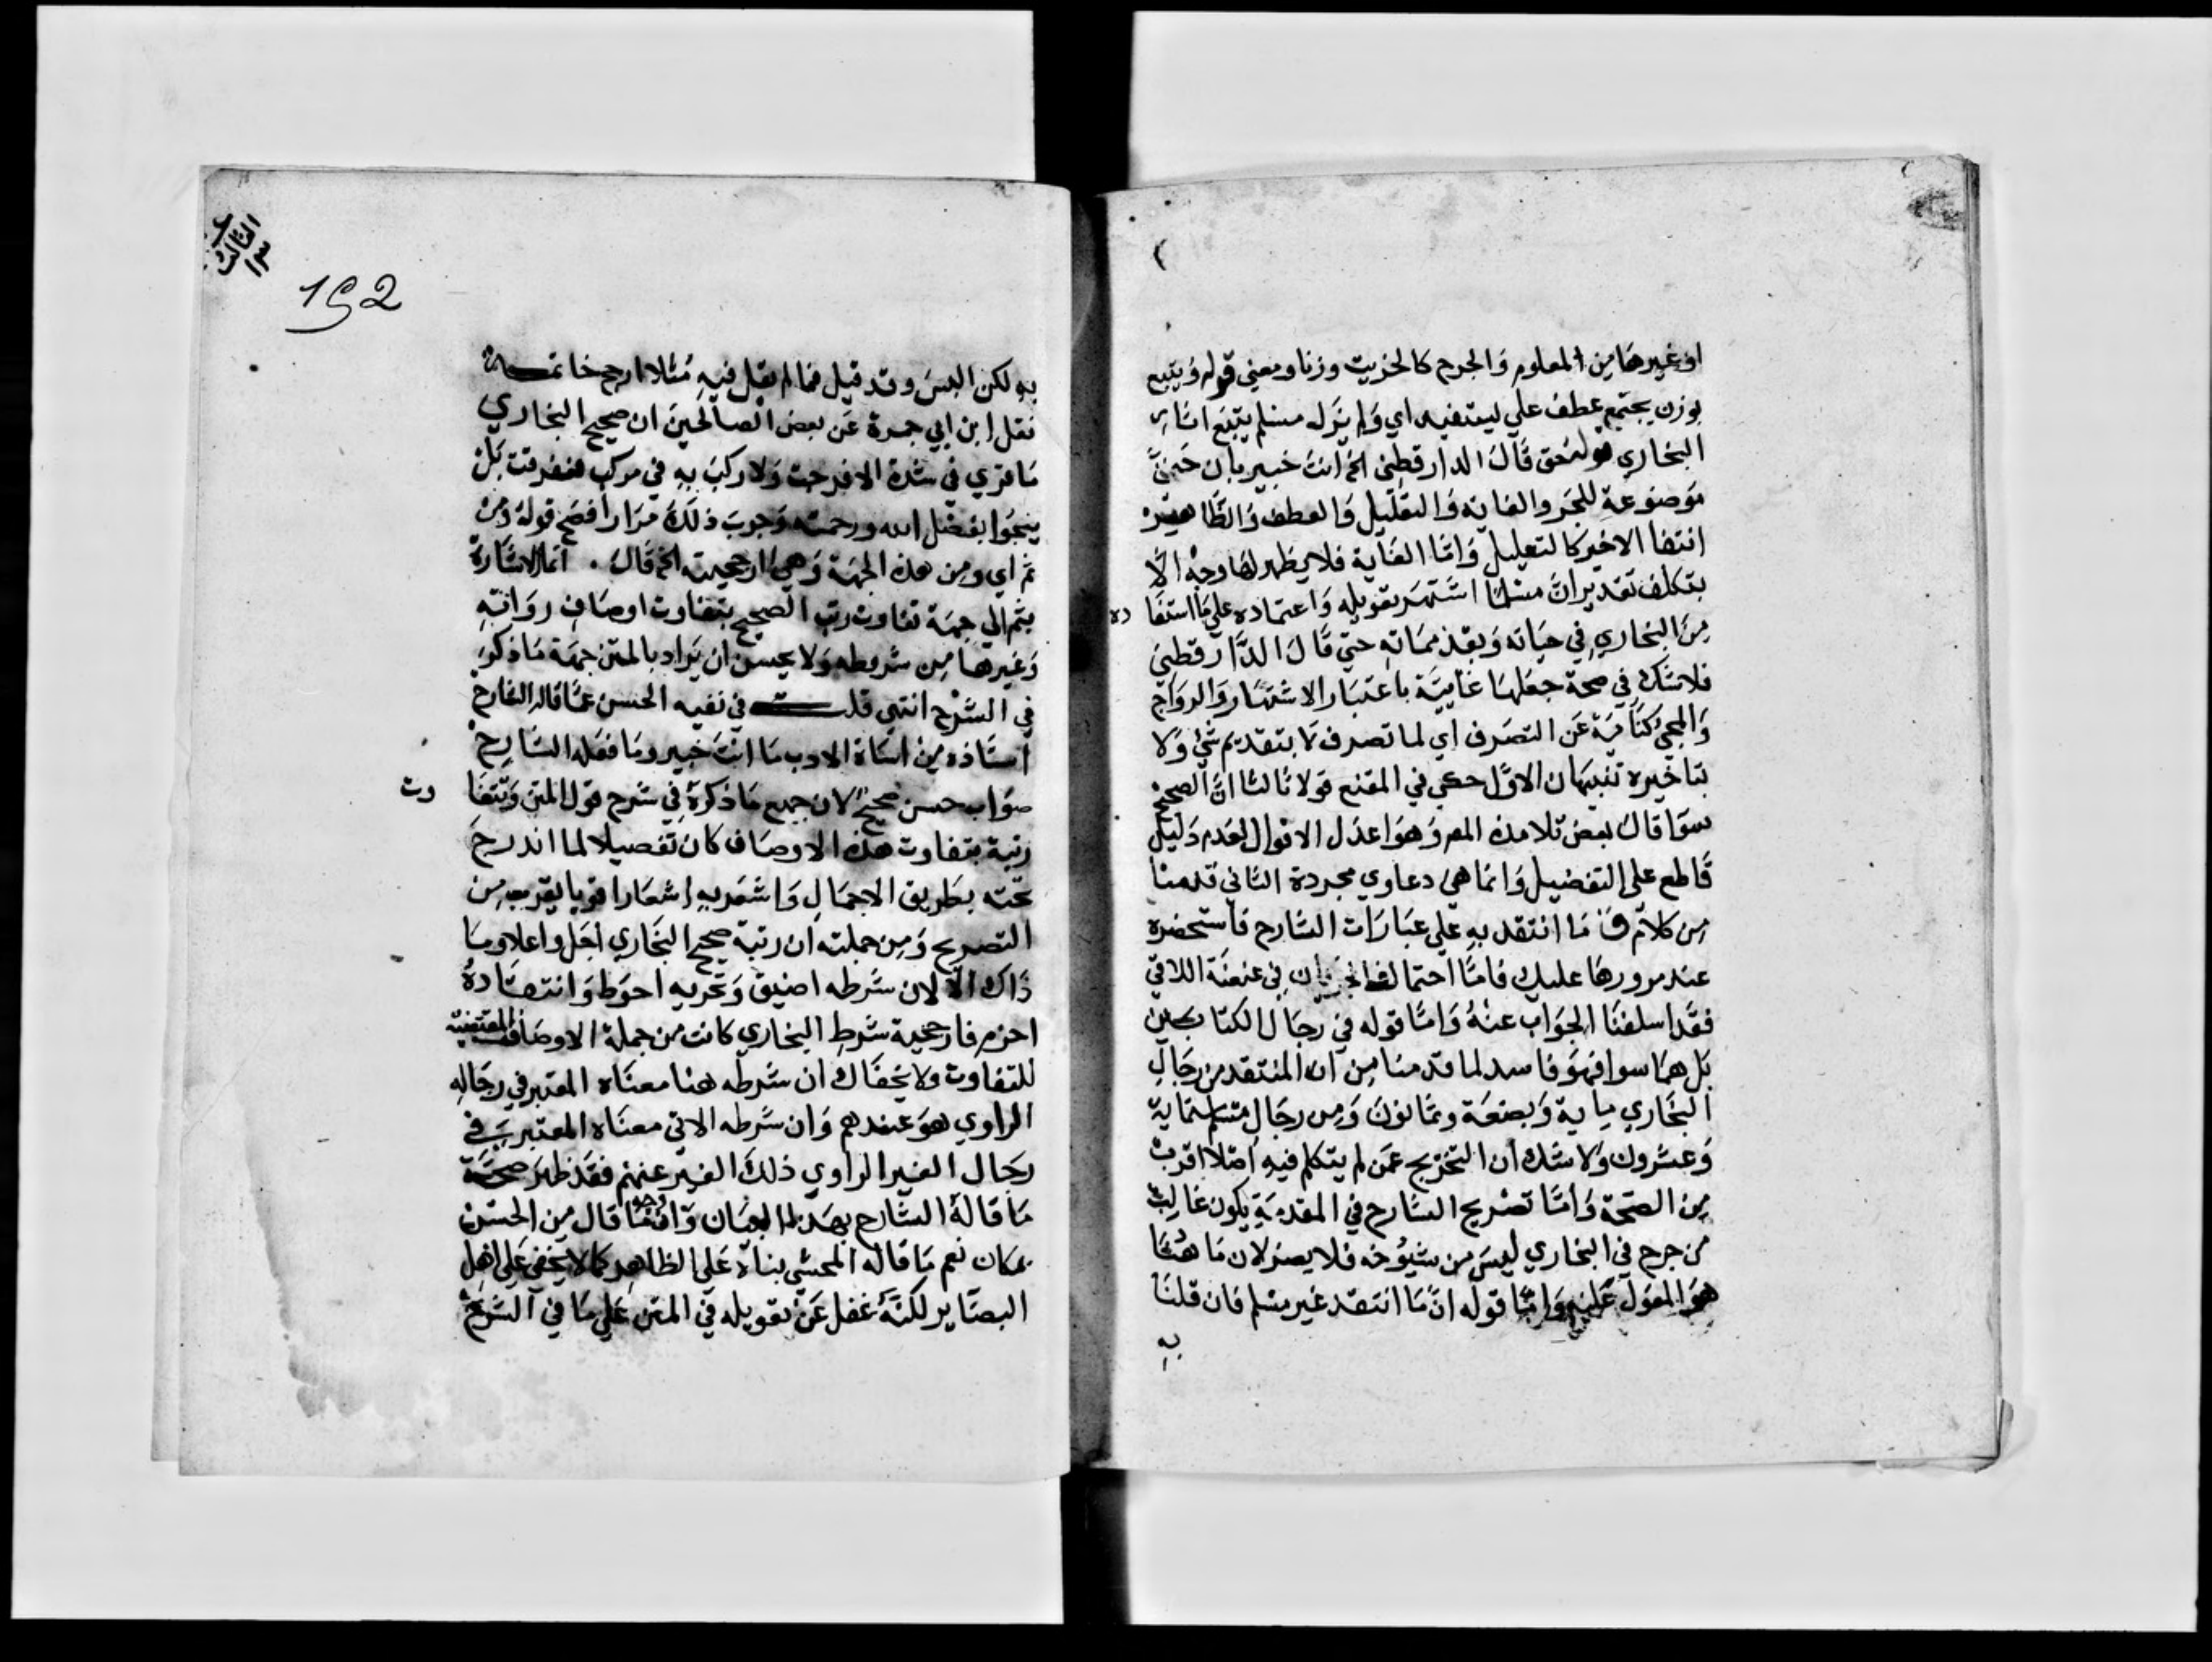 او غيرها من المعلوم والجرح كالخريت وزنا ومعني قوله ويتبع
بوزن يجتمع عطف علي ليستفيد اي ولم يزل مسلم يتبع اثار
البخاري قوله حتي قال الدارقطني الخ انت خبير بان حتي
موضوعة للجر والغاية والتقليل والعطف والظاهر
انتفا الاخير كالتعليل واما الغاية فلا يظهر لها وجه الا
بتكلف تقدير ان مسلما اشتهر بتعويله واعتماده علي ما استفا
ده
من البخاري في حياته وبعد مماته حتي قال الدارقطني
فلا شك في صحة جعلها غايية باعتبار الاشتهار والرواج
والمجي كناية عن التصرف اي لما تصرف لا بتقديم شي ولا
بتاخيره تنبيهان الاول حكي في المقنع قولا ثالثا ان الصحيح
سوا قال بعض تلامذه المص وهو اعدل الاقوال لعدم دليل
قاطع علي التفضيل وانما هي دعاوي مجردة الثاني قدمنا
من كلام ق ما انتقد به علي عبارات الشارح فاستحضره
عند مرورها عليك فاما احتمال في عنعنة اللاقي
فقد اسلفنا الجواب عنه واما قوله في رجال الكتابين
بل هما سوا فهو فاسد لما قدمنا من ان المنتقد من رجال
البخاري ماية وبضعة وثمانون ومن رجال مسلم ماية
وعشرون ولا شك ان التخريج عمن لم يتكلم فيه اصلا اقرب
من الصحة واما تصريح الشارح في المقدمة يكون غالب
من جرح في البخاري ليس من شيوخه فلا يضر لان ما هنا
هو المعول عليه واما قوله ان ما انتقد غير مسلم فان قلنا
به
الثالث
١٣
192
به لكن البس وقد قيل فما لم يقل فيه مثلا ارجح خاتمة
نقل ابن ابي جمرة عن بعض الصالحين ان صحيح البخاري
ما قري في شدة الا فرجت ولا ركب به في مركب فغرقت بل
ينجوا بفضل الله ورحمته وجرب ذلك مرارا فصح قوله ومن
ثم اي ومن هذه الجهة وهي ارجحيته الخ قال . انما الاشارة
بثم الي جهة تفاوت رتب الصحيح بتفاوت اوصاف رواته
وغيرها من شروطه ولا يحسن ان يراد بالمتن جهة ما ذكره
في الشرح انتهي قلت في نفيه الحسن عما قاله الشارح
استاذه من اساة الادب ما انت خبير وما فعله الشارح
صواب حسن صحيح لان جميع ما ذكره في شرح قول المتن وتتفا
وت
رتبة بتفاوت هذه الاوصاف كان تفصيلا لما اندرج
تحته بطريق الاجمال واشعر به اشعارا قويا يقرب من
التصريح ومن جملته ان رتبة صحيح البخاري اجل واعلا وما
ذاك الا لان شرطه اضيق وتحريه احوط وانتقاده
احزم فارجحية شرط البخاري كانت من جملة الاوصاف المقتضية
للتفاوت ولا يخفاك ان شرطه هنا معناه المعتبر في رجاله
الراوي هو عندهم وان شرطه الاتي معناه المعتبر في
رجال الغير الراوي ذلك الغير عنهم فقد ظهر صحة
ما قاله الشارح بهذا البيان وافقه قال من الحسن
بمكان نعم ما قاله المحشي بناه علي الظاهر كما لا يخفي علي اهل
البصاير لكنه غفل عن تعويله في المتن علي ما في الشرح